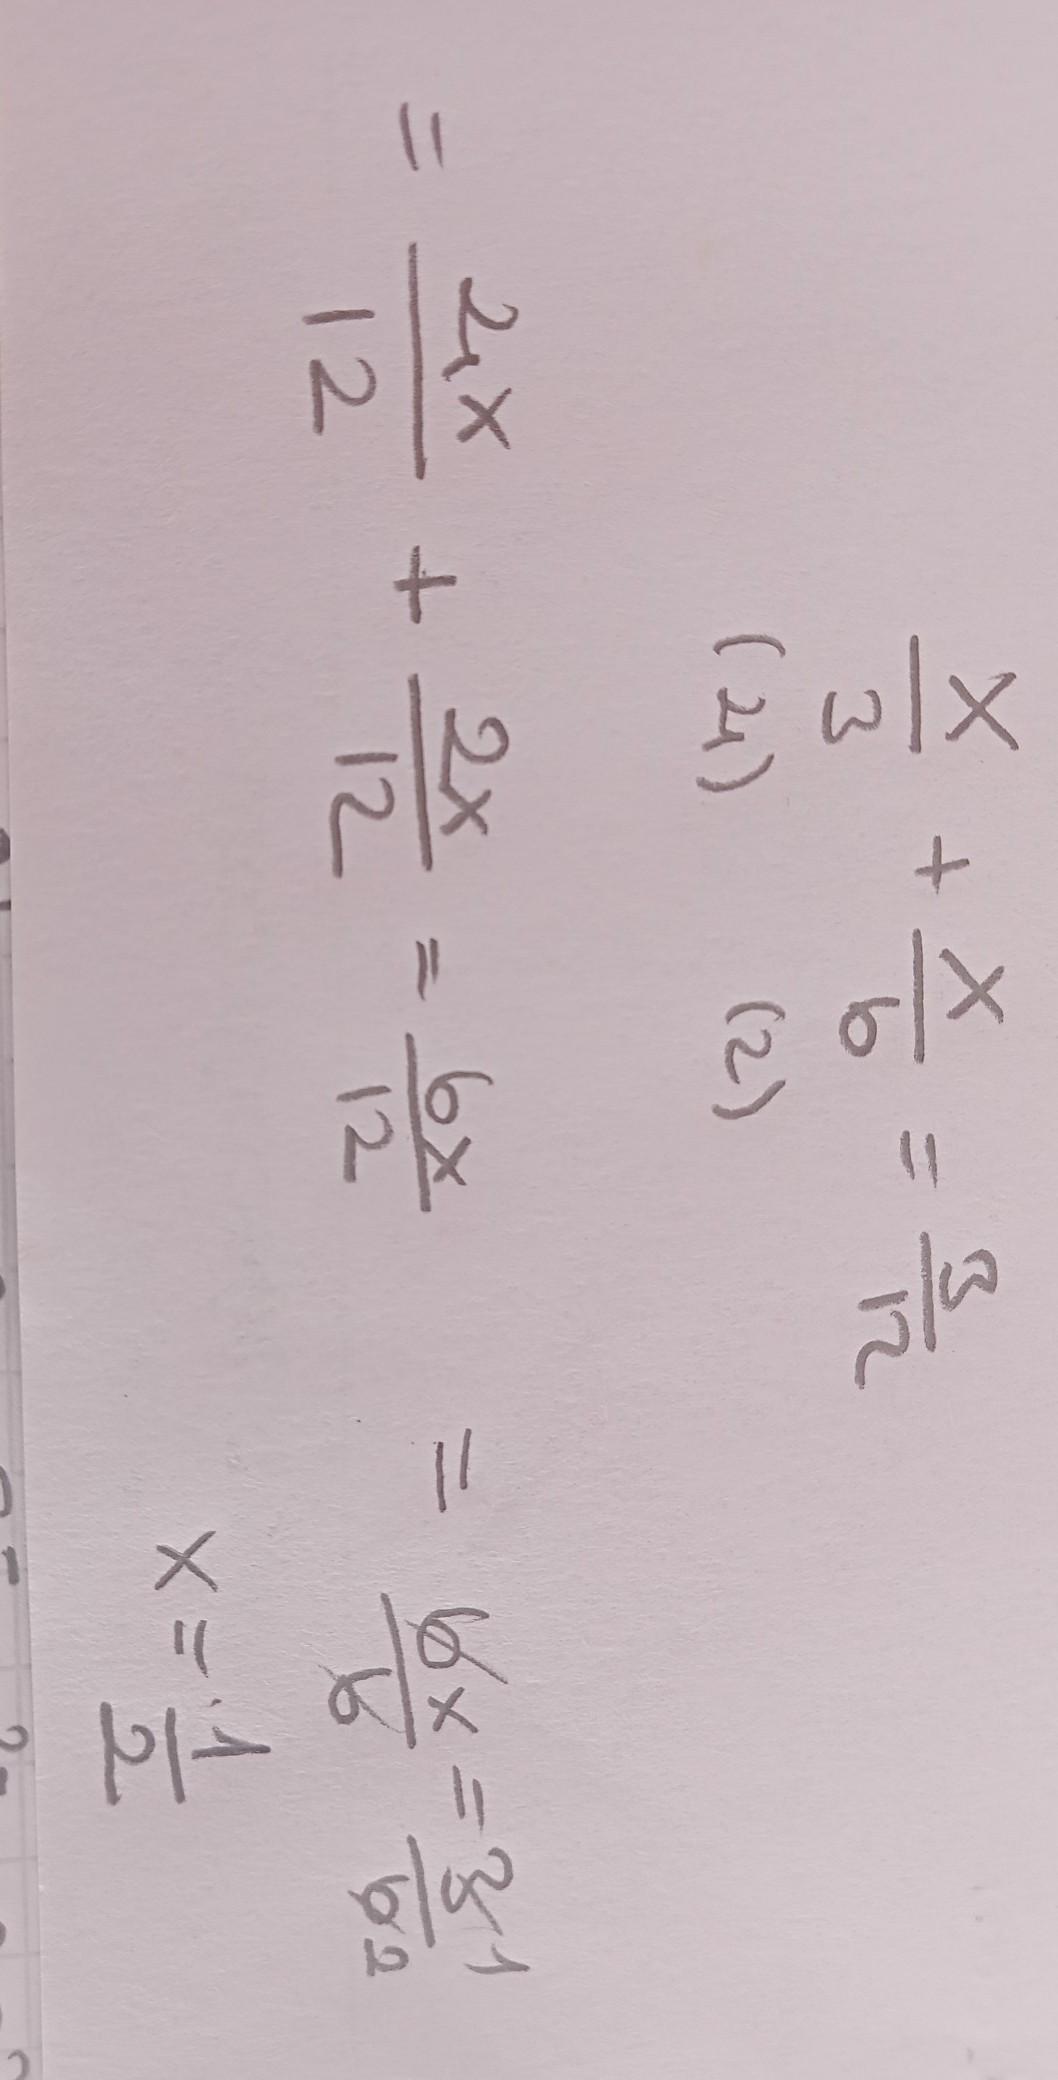 x/3 + x/6 = 3/12
(4) (2)
= 4x/12 + 2x/12 = 6x/12 = 6x/6 = 3/6 1 2
x = 1/2